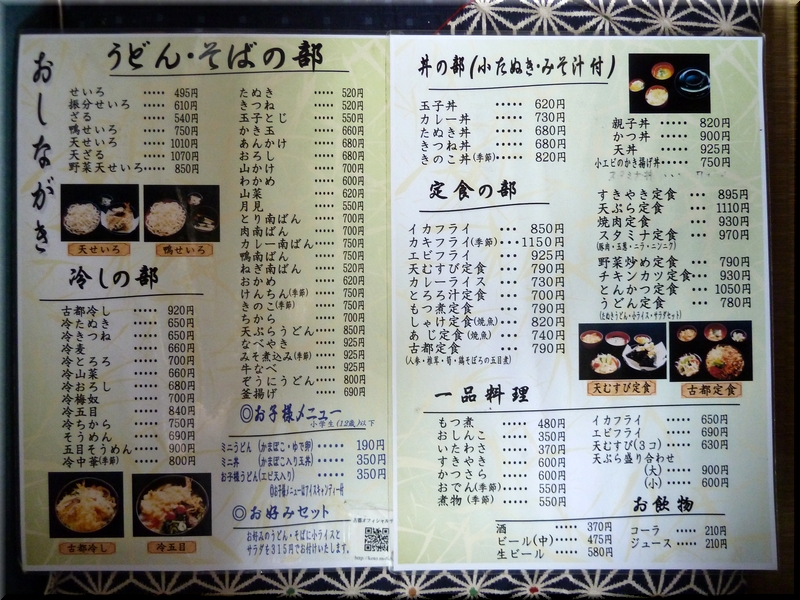 おしながき
うどん・そばの部
せいろ ····· 495円
振分せいろ ····· 610円
ざる ····· 540円
鴨せいろ ····· 750円
天せいろ ····· 1010円
天ざる ····· 1070円
野菜天せいろ ····· 850円
天せいろ
鴨せいろ
冷しの部
古都冷し ····· 920円
冷たぬき ····· 650円
冷きつね ····· 650円
冷麦 ····· 660円
冷とろろ ····· 700円
冷山菜 ····· 660円
冷おろし ····· 680円
冷梅奴 ····· 700円
冷五目 ····· 840円
冷ちから ····· 750円
そうめん ····· 690円
五目そうめん ····· 900円
冷中華(季節) ····· 800円
古都冷し
冷五目
たぬき ····· 520円
きつね ····· 520円
玉子とじ ····· 550円
かき玉 ····· 660円
あんかけ ····· 680円
おろし ····· 680円
山かけ ····· 700円
わかめ ····· 600円
山菜 ····· 620円
月見 ····· 550円
とり南ばん ····· 700円
肉南ばん ····· 700円
カレー南ばん ····· 750円
鴨南ばん ····· 750円
ねぎ南ばん ····· 620円
おかめ ····· 620円
けんちん(季節) ····· 750円
きのこ(季節) ····· 750円
ちから ····· 700円
天ぷらうどん ····· 850円
なべやき ····· 925円
みそ煮込み(季節) ····· 925円
牛なべ ····· 925円
ぞうにうどん ····· 800円
釜揚げ ····· 690円
◎お子様メニュー
小学生(12歳)以下
ミニうどん (かまぼこ・ゆで卵) ····· 190円
ミニ丼 (かまぼこ入り玉丼) ····· 350円
お子様うどん(エビ天入り) ····· 350円
◎お子様メニューはアイスキャンディー付
◎お好みセット
お好みのうどん・そばに小ライスと
サラダを315円でお付けいたします。
丼の部(小たぬき・みそ汁付)
玉子丼 ····· 620円
カレー丼 ····· 730円
たぬき丼 ····· 680円
きつね丼 ····· 680円
きのこ丼(季節) ····· 820円
親子丼 ····· 820円
かつ丼 ····· 900円
天丼 ····· 925円
小エビのかき揚げ丼 ····· 750円
定食の部
イカフライ ····· 850円
カキフライ(季節) ··· 1150円
エビフライ ····· 925円
天むすび定食 ····· 790円
カレーライス ····· 730円
とろろ汁定食 ····· 700円
もつ煮定食 ····· 790円
しゃけ定食(焼魚) ····· 820円
あじ定食(焼魚) ····· 740円
古都定食 ····· 790円
(人参・椎茸・筍・鶏そぼろの五目煮)
すきやき定食 ··· 895円
天ぷら定食 ··· 1110円
焼肉定食 ··· 930円
スタミナ定食 ··· 970円
(豚肉・玉葱・ニラ・ニンニク)
野菜炒め定食 ··· 790円
チキンカツ定食 ··· 930円
とんかつ定食 ··· 1050円
うどん定食 ··· 780円
(たぬきうどん・小ライス・サラダセット)
天むすび定食
古都定食
一品料理
もつ煮 ····· 480円
おしんこ ····· 350円
いたわさ ····· 370円
すきやき ····· 600円
かつさら ····· 600円
おでん(季節) ····· 550円
煮物(季節) ····· 550円
イカフライ ····· 650円
エビフライ ····· 690円
天むすび(3コ) ····· 630円
天ぷら盛り合わせ
(大) ····· 900円
(小) ····· 600円
お飲物
酒 ····· 370円
ビール(中) ····· 475円
生ビール ····· 580円
コーラ ····· 210円
ジュース ····· 210円